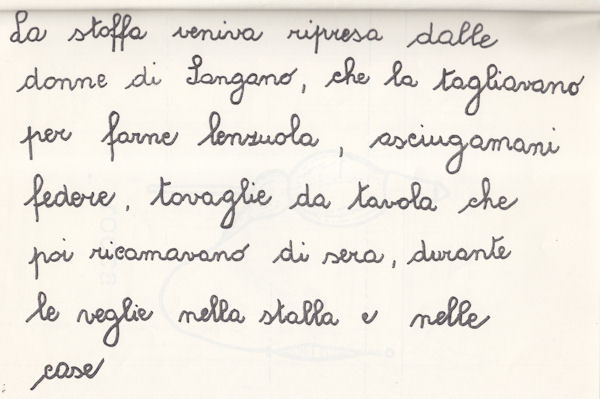 La stoffa veniva ripresa dalle
donne di Sangano, che la tagliavano
per farne lenzuola, asciugamani
federe, tovaglie da tavola che
poi ricamavano di sera, durante
le veglie nella stalla e nelle
case